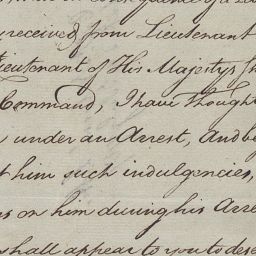 received from Lieutenant
Lieutenant of His Majestys
Command, I have thought
under an Arrest, and
him such indulgencies,
on him during his
shall appear to you to